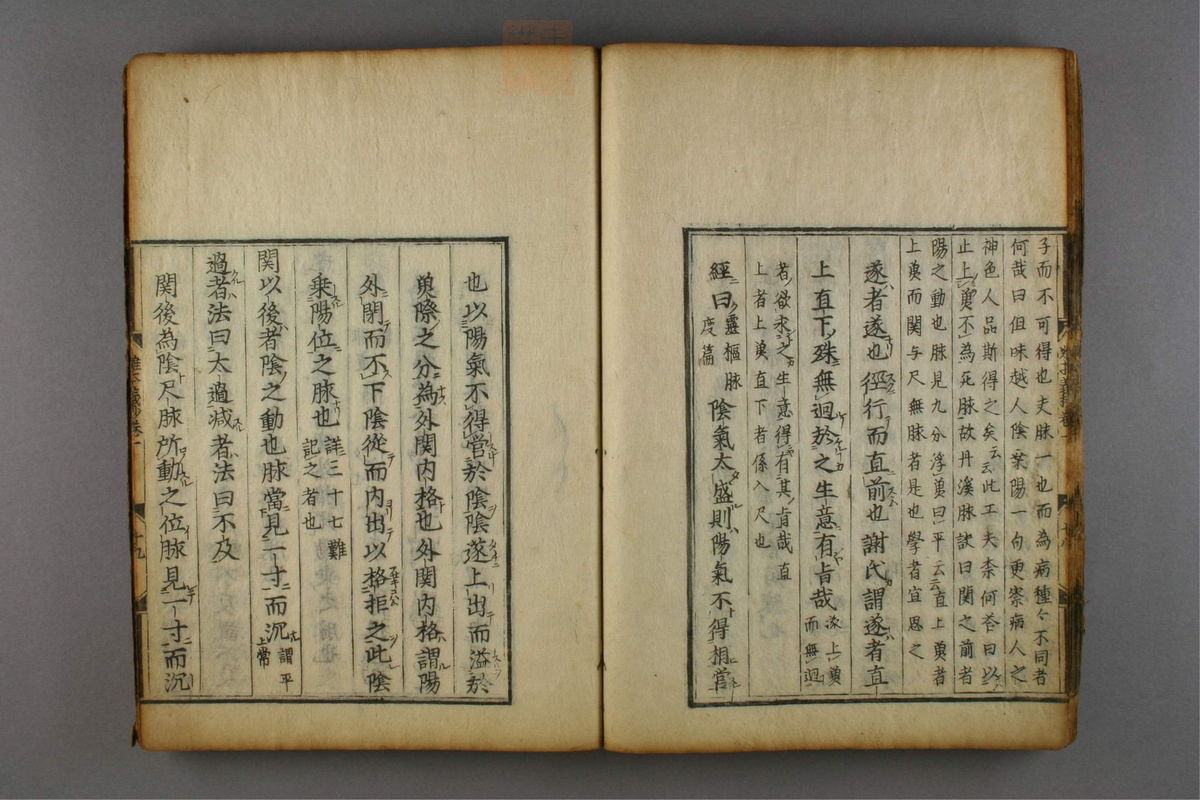 子而不可得也夫脉一也而為病種々不同者
何哉曰但味越人陰乗陽一句更察病人之
神色人品斯得之矣云云此工夫柰何荅曰以
止上奠不為死脉故丹溪脉訣曰関之前者
陽之動也脉見九分浮奠曰平云云直上奠者
上奠而関与尺無脉者是也學者宜思之
遂者遂也徑行而直前也謝氏謂遂者直
上直下殊無迴於之生意有旨哉
遂上奠
而無迴
者欲求之生意得有其旨哉直
上者上奠直下者係入尺也
經曰
靈樞脉
度篇
陰氣太盛則陽氣不得相営
也以陽氣不得営於陰陰遂上出而溢於
奠際之分為外関内格也外関内格謂陽
外閉而不下陰從而内出以格拒之此陰
乗陽位之脉也
詳三十七難
記之者也
関以後者陰之動也脉當見一寸而沉
謂平
上常
過者法曰太過減者法曰不及
関後為陰尺脉所動之位脉見一寸而沉